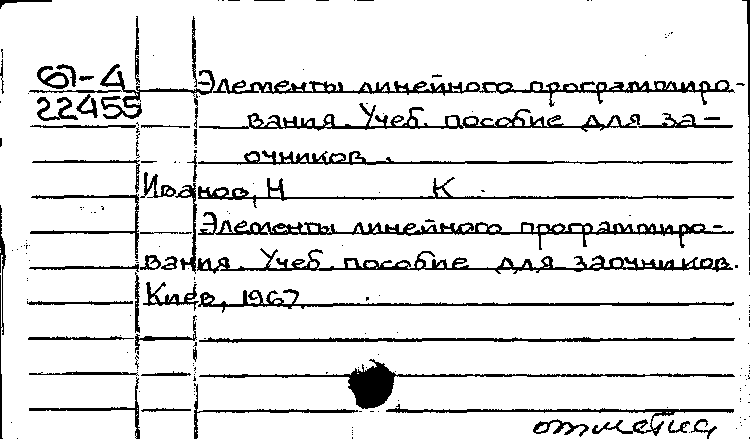 67-4 Элементы линейного программиро-
22455 вания. Учеб. пособие для за-
очников.
Иванов, Н К.
Элементы линейного программиро-
вания. Учеб. пособие для заочников.
Киев, 1967.